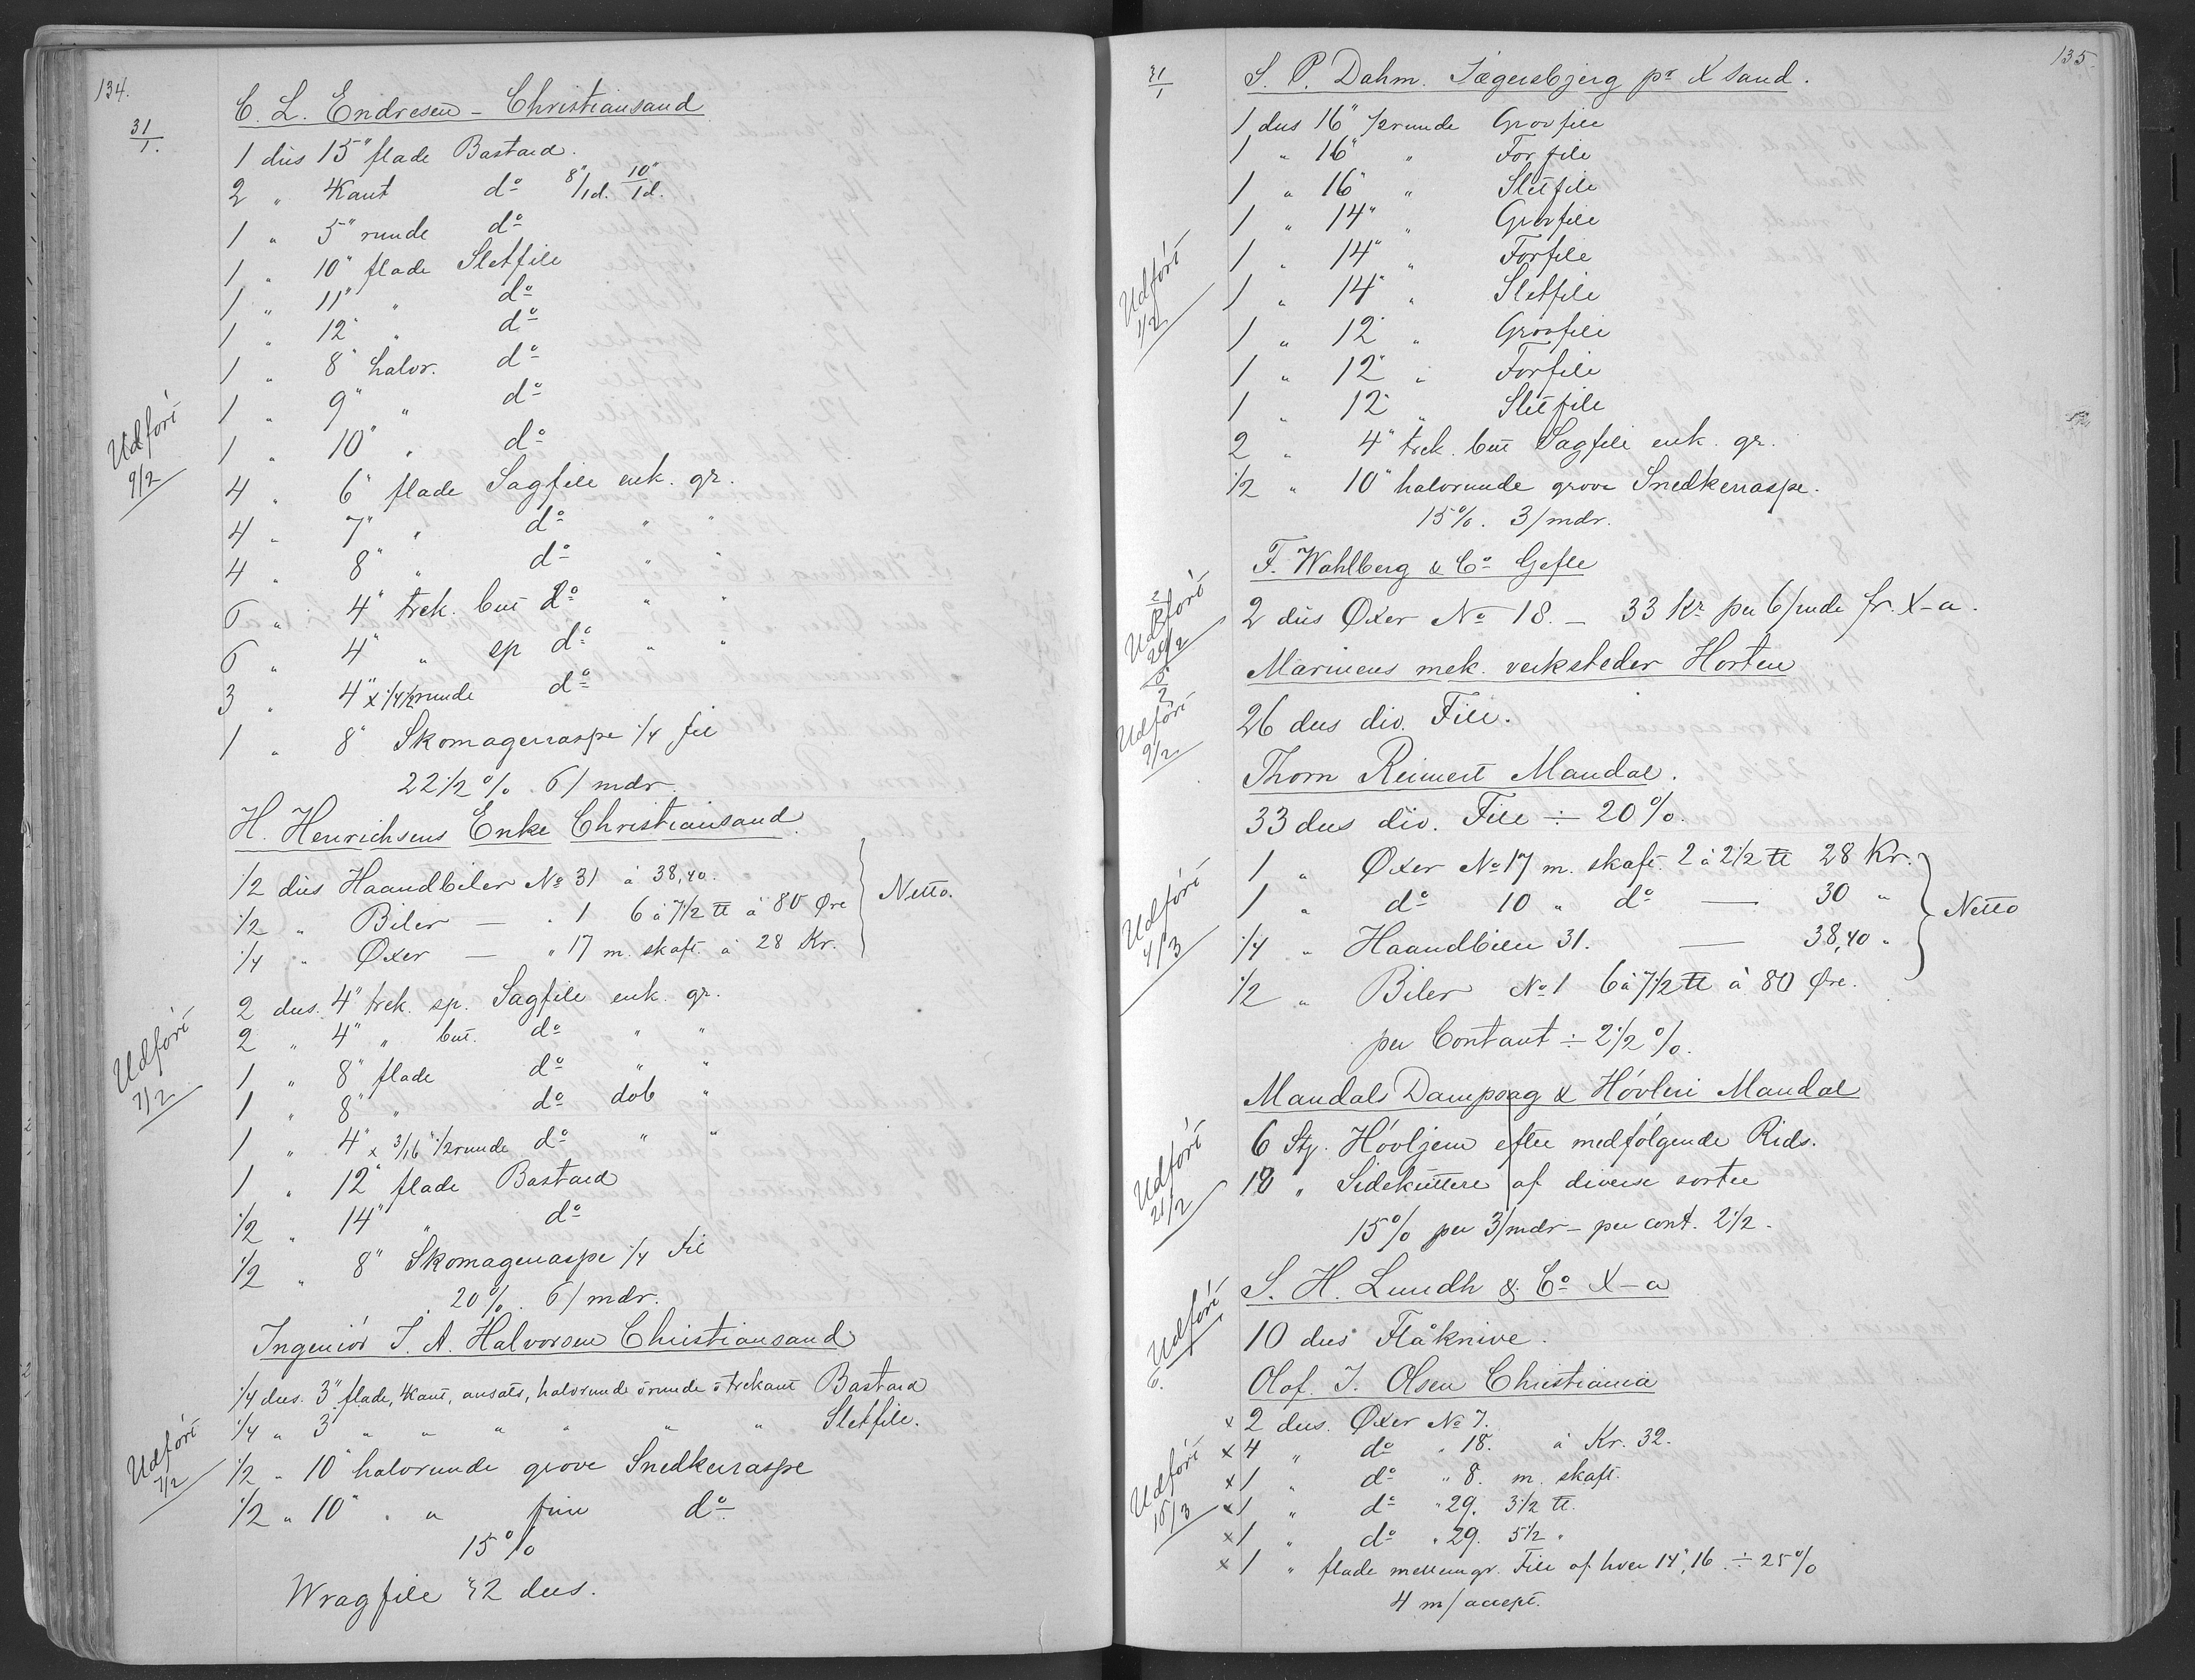 134.
31/1.
C. L. Endresen - Christiansand
1 dus 15" flade Bastard.
2 " 4Kant do 8"/1d. 10"/1d.
1 " 5" runde do
1 " 10" flade Sletfile
1 " 11" " do
1 " 12" " do
1 " 8" halvr. do
1 " 9" " do
1 " 10" " do
Udført 9/2
4 " 6" flade Sagfile enk. gr.
4 " 7" " do " "
4 " 8" " do " "
6 " 4" trek. but do " "
6 " 4" " sp do " "
3 " 4" x 1/4 1/2runde do
1 " 8" Skomagerraspe 1/4 fil
22 1/2 %. 6/mdr.
H. Henrichsens Enke Christiansand
1/2 dus Haandbiler No 31 à 38,40.
1/2 " Biler — " 1 6 à 7 1/2 ℔ à 80 Øre
1/4 " Øxer — " 17 m. skaft. à 28 Kr.
Netto.
2 dus. 4" trek. sp. Sagfile enk. gr.
2 " 4" " but. do " "
1 " 8" flade do " "
Udført 7/2
1 " 8" " do dob "
1 " 4" x 3/16" 1/2runde do " "
1 " 12" flade Bastard
1/2 " 14" " do
1/2 " 8" Skomagerraspe 1/4 fil
20%. 6/mdr.
Ingeniør J. A. Halvorsen Christiansand
1/4 dus. 3" flade, 4kant, ansats, halvrunde o runde o trekant Bastard
1/4 " 3" " " " " " " Sletfile.
Udført 7/2
1/2 " 10" halvrunde grove Snedkerraspe
1/2 " 10" " " fine do
15%
Wragfile 32 dus.
135.
31/1
S. P. Dahm. Jægersbjerg pr X sand.
1 dus 16" 1/2runde Grovfile
1 " 16" " Forfile
1 " 16" " Sletfile
1 " 14" " Grovfile
1 " 14" " Forfile
Udført 1/2
1 " 14" " Sletfile
1 " 12" " Grovfile
1 " 12" " Forfile
1 " 12" " Sletfile
2 " 4" trek. but Sagfile enk. gr.
1/2 " 10" halvrunde grove Snedkerraspe.
15%. 3/mdr.
F. Wahlberg & Co Gefle
Udført 20/2
2 dus Øxer No 18. - 33 Kr per 6/mde fr. X-a.
Marinens mek. verksteder Horten
Udført 9/2
26 dus div. File.
Thorn Reinert Mandal.
33 dus div. File ÷ 20%.
1 " Øxer No 17 m. skaft. 2 à 2 1/2 ℔ 28 Kr.
1 " do 10 " do — 30 "
Udført 4/3
1/4 " Haandbiler 31. — 38,40 "
1/2 " Biler No 1 6 à 7 1/2 ℔ à 80 Øre.
Netto
per Contant ÷ 2 1/2 %.
Mandals Dampsag & Høvleri Mandal
6 Stg. Høvljern efter medfølgende Rids.
Udført 21/2
10 " Sidekuttere af diverse sorter
15% per 3/mdr - per cont. 2 1/2.
S. H. Lundh & Co X-a
Udført
10 dus Flåknive.
Olaf. J. Olsen Christiania
x 2 dus. Øxer No 7.
x 4 " do " 18. à Kr. 32.
x 1 " do " 8. m. skaft.
Udført 15/3
x 1 " do " 29. 3 1/2 ℔.
x 1 " do " 29. 5 1/2 "
x 1 " flade mellemgr. File af hver 14", 16" ÷ 25%
4 m/accept.